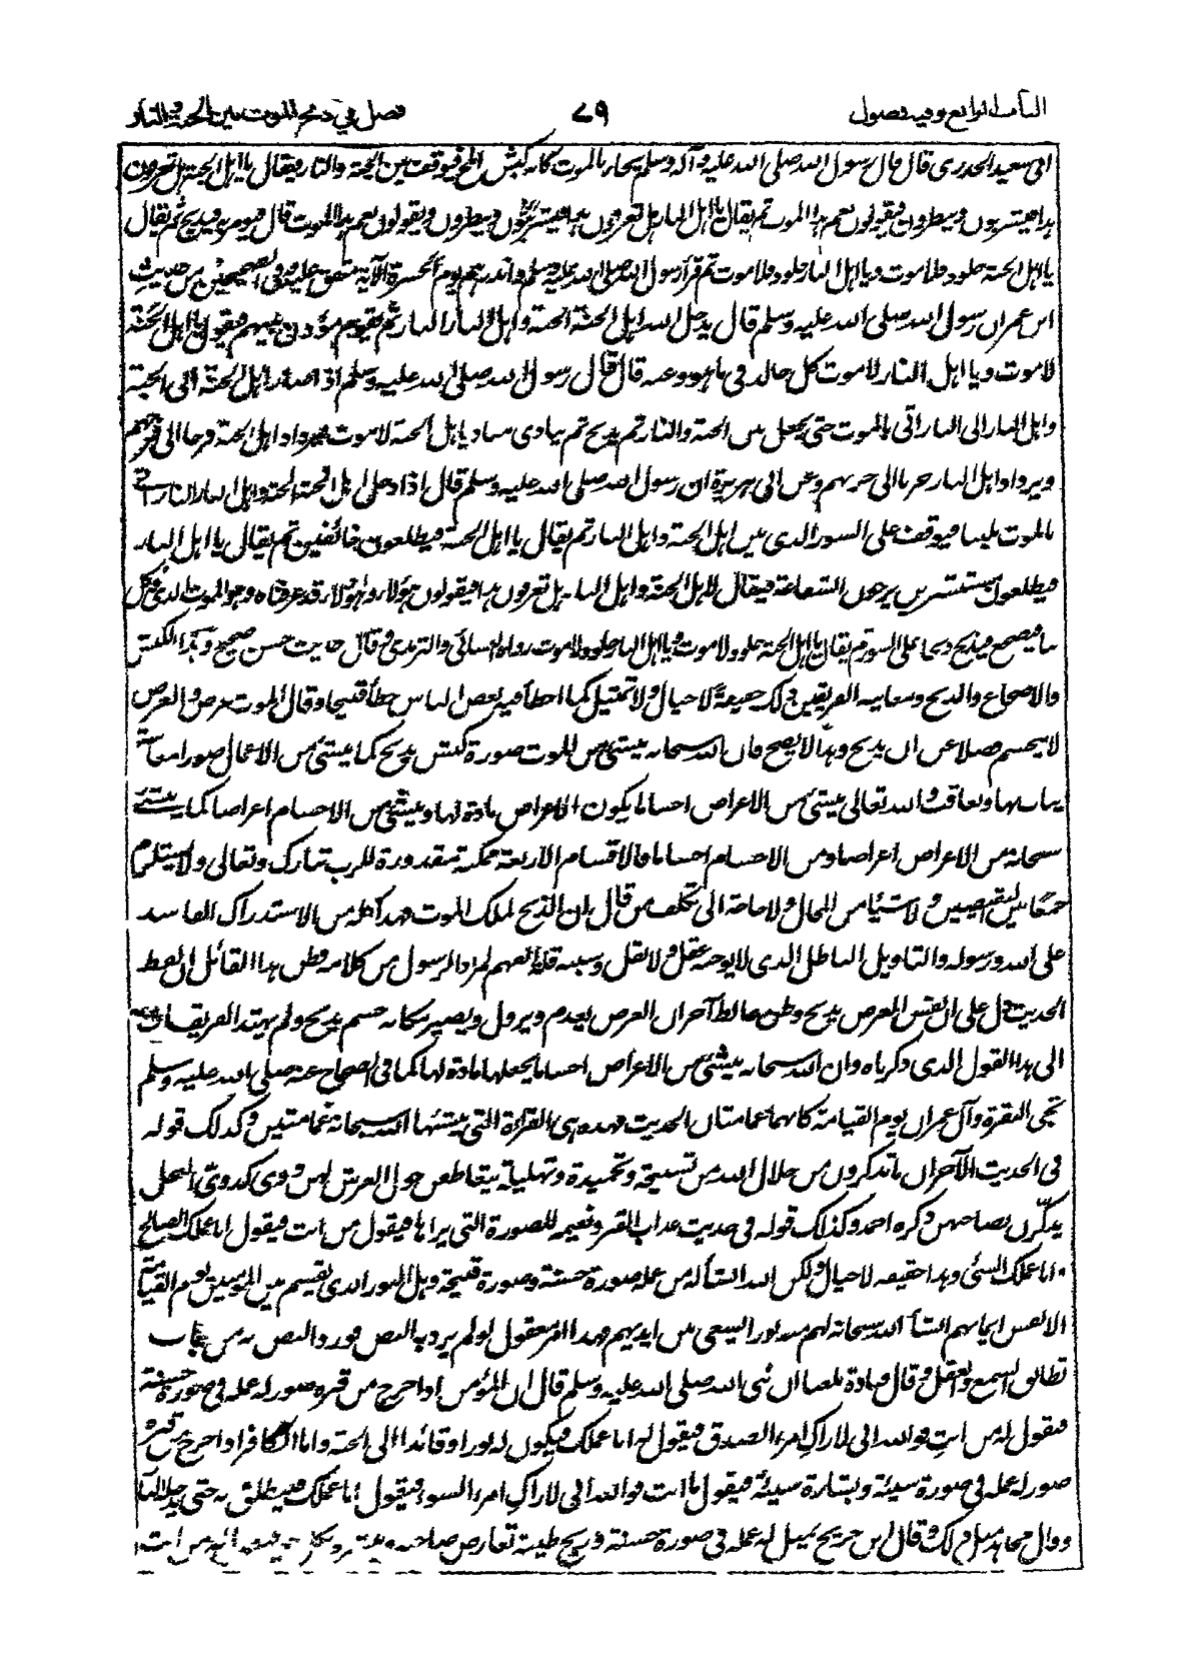 الباب الرابع وفيه فصول ٧٩ فصل في ذبح الموت بين الجنة والنار
ابي سعيد الخدري قال قال رسول الله صلى الله عليه وآله وسلم يجاء بالموت كانه كبش املح فيوقف بين الجنة والنار فيقال يا اهل الجنة هل تعرفون
هذا فيشرئبون وينظرون فيقولون نعم هذا الموت ثم يقال يا اهل النار هل تعرفون هذا فيشرئبون وينظرون ويقولون نعم هذا الموت قال فيؤمر به فيذبح ثم يقال
يا اهل الجنة خلود فلا موت ويا اهل النار خلود فلا موت ثم قرأ رسول الله صلى الله عليه وسلم وانذرهم يوم الحسرة الآية متفق عليه وفي الصحيحين من حديث
ابن عمر ان رسول الله صلى الله عليه وسلم قال يدخل الله اهل الجنة الجنة واهل النار النار ثم يقوم مؤذن بينهم فيقول يا اهل الجنة
لا موت ويا اهل النار لا موت كل خالد في ما هو وعنه قال قال رسول الله صلى الله عليه وسلم اذا صار اهل الجنة الى الجنة
واهل النار الى النار اتي بالموت حتى يجعل بين الجنة والنار ثم يذبح ثم ينادي مناد يا اهل الجنة لا موت فيزداد اهل الجنة فرحا الى فرحهم
ويزداد اهل النار حزنا الى حزنهم وعن ابي هريرة ان رسول الله صلى الله عليه وسلم قال اذا دخل اهل الجنة الجنة واهل النار النار اتي
بالموت ملببا فيوقف على السور الذي بين اهل الجنة واهل النار ثم يقال يا اهل الجنة فيطلعون خائفين ثم يقال يا اهل النار
فيطلعون مستبشرين يرجون الشفاعة فيقال لاهل الجنة واهل النار هل تعرفون هذا فيقولون هؤلاء وهؤلاء قد عرفناه وهو الموت الذي وكل
بنا فيضجع فيذبح ذبحا على السور ثم يقال يا اهل الجنة خلود ولا موت ويا اهل النار خلود ولا موت رواه النسائي والترمذي وقال حديث حسن صحيح وهذا الكبش
والاضجاع والذبح ومعاينة الفريقين ذلك حقيقة لا خيال ولا تمثيل كما اخطأ فيه بعض الناس خطأ قبيحا وقال الموت عرض والعرض
لا يتجسم فضلا عن ان يذبح وهذا لا يصح فان الله سبحانه ينشئ من الموت صورة كبش يذبح كما ينشئ من الاعمال صورا معاينة
يثاب بها ويعاقب والله تعالى ينشئ من الاعراض اجساما يكون الاعراض مادة لها وينشئ من الاجسام اعراضا كما ينشئ
سبحانه من الاعراض اعراضا ومن الاجسام اجساما فالاقسام الاربعة ممكنة مقدورة للرب تبارك وتعالى ولا يستلزم
جمعا بين النقيضين ولا شيئا من المحال ولا حاجة الى تكلف من قال بان الذبح لملك الموت فهذا كله من الاستدراك الفاسد
على الله ورسوله والتاويل الباطل الذي لا يوجبه عقل ولا نقل وسببه قلة الفهم لمراد الرسول من كلامه وظن هذا القائل ان لفظ
الحديث دل على ان نفس العرض يذبح وظن غالط آخر ان العرض يعدم ويزول ويصير مكانه جسم يذبح ولم يهتد الفريقان
الى هذا القول الذي ذكرناه وان الله سبحانه ينشئ من الاعراض اجساما يجعلها مادة لها كما في الصحاح عنه صلى الله عليه وسلم
تجئ البقرة وآل عمران يوم القيامة كانهما غمامتان الحديث فهذه هي القراءة التي ينشئها الله سبحانه غمامتين وكذلك قوله
في الحديث الآخر ان ما تذكرون من جلال الله من تسبيحه وتحميده وتهليله يتعاطفن حول العرش لهن دوي كدوي النحل
يذكرن بصاحبهن ذكره احمد وكذلك قوله في حديث عذاب القبر ونعيمه للصورة التي يراها فيقول من انت فيقول انا عملك الصالح
وانا عملك السيئ وهذا حقيقة لا خيال ولكن الله انشأ له من عمله صورة حسنة وصورة قبيحة وهل النور الذي يقسم بين المؤمنين يوم القيامة
الا نفس ايمانهم انشأ الله سبحانه لهم منه نورا يسعى بين ايديهم فهذا امر معقول لو لم يرد به النص فورود النص به من باب
تطابق السمع والعقل وقال قتادة بلغنا ان نبي الله صلى الله عليه وسلم قال ان المؤمن اذا خرج من قبره صور له عمله في صورة حسنة
فيقول له من انت فوالله اني لاراك امرء الصدق فيقول له انا عملك فيكون له نورا وقائدا الى الجنة واما الكافر اذا خرج من قبره
صور له عمله في صورة سيئة وبشارة سيئة فيقول ما انت فوالله اني لاراك امرء السوء فيقول انا عملك فينطلق به حتى يدخله النار
وقال مجاهد مثل ذلك وقال ابن جريج يمثل له عمله في صورة حسنة وريح طيبة تعارض صاحبه